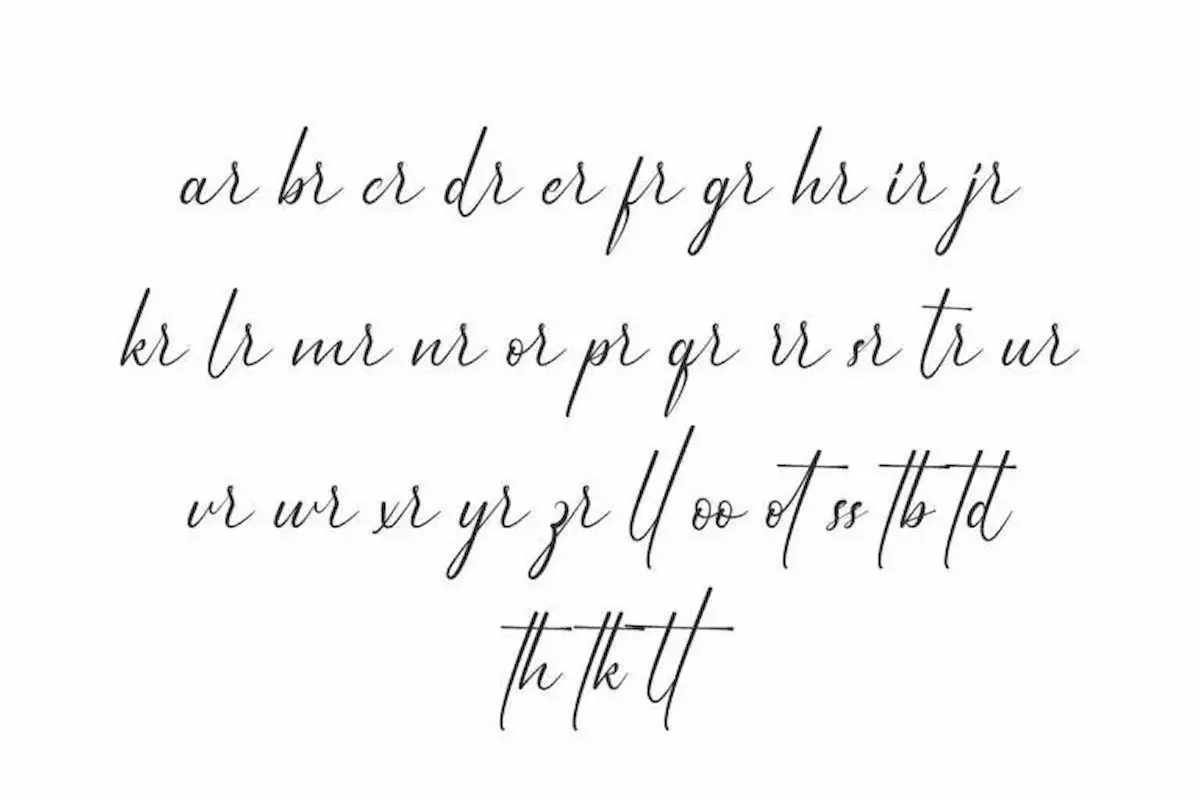 ar br cr dr er fr gr hr ir jr
kr lr mr nr or pr qr rr sr tr ur
vr wr xr yr zr ll oo ot ss tb td
th tk tl